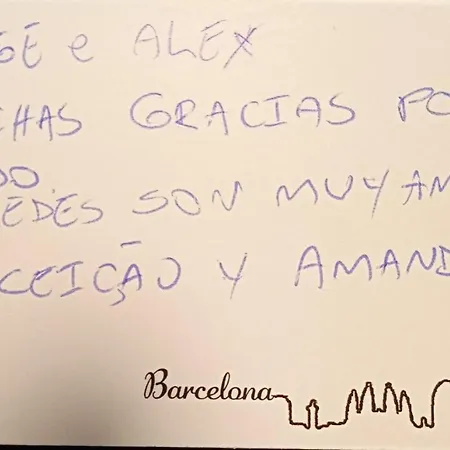 GE e ALEX
HAS GRACIAS PO
DO
EDES SON MUY AM
CEIÇÃO Y AMAND
Barcelona